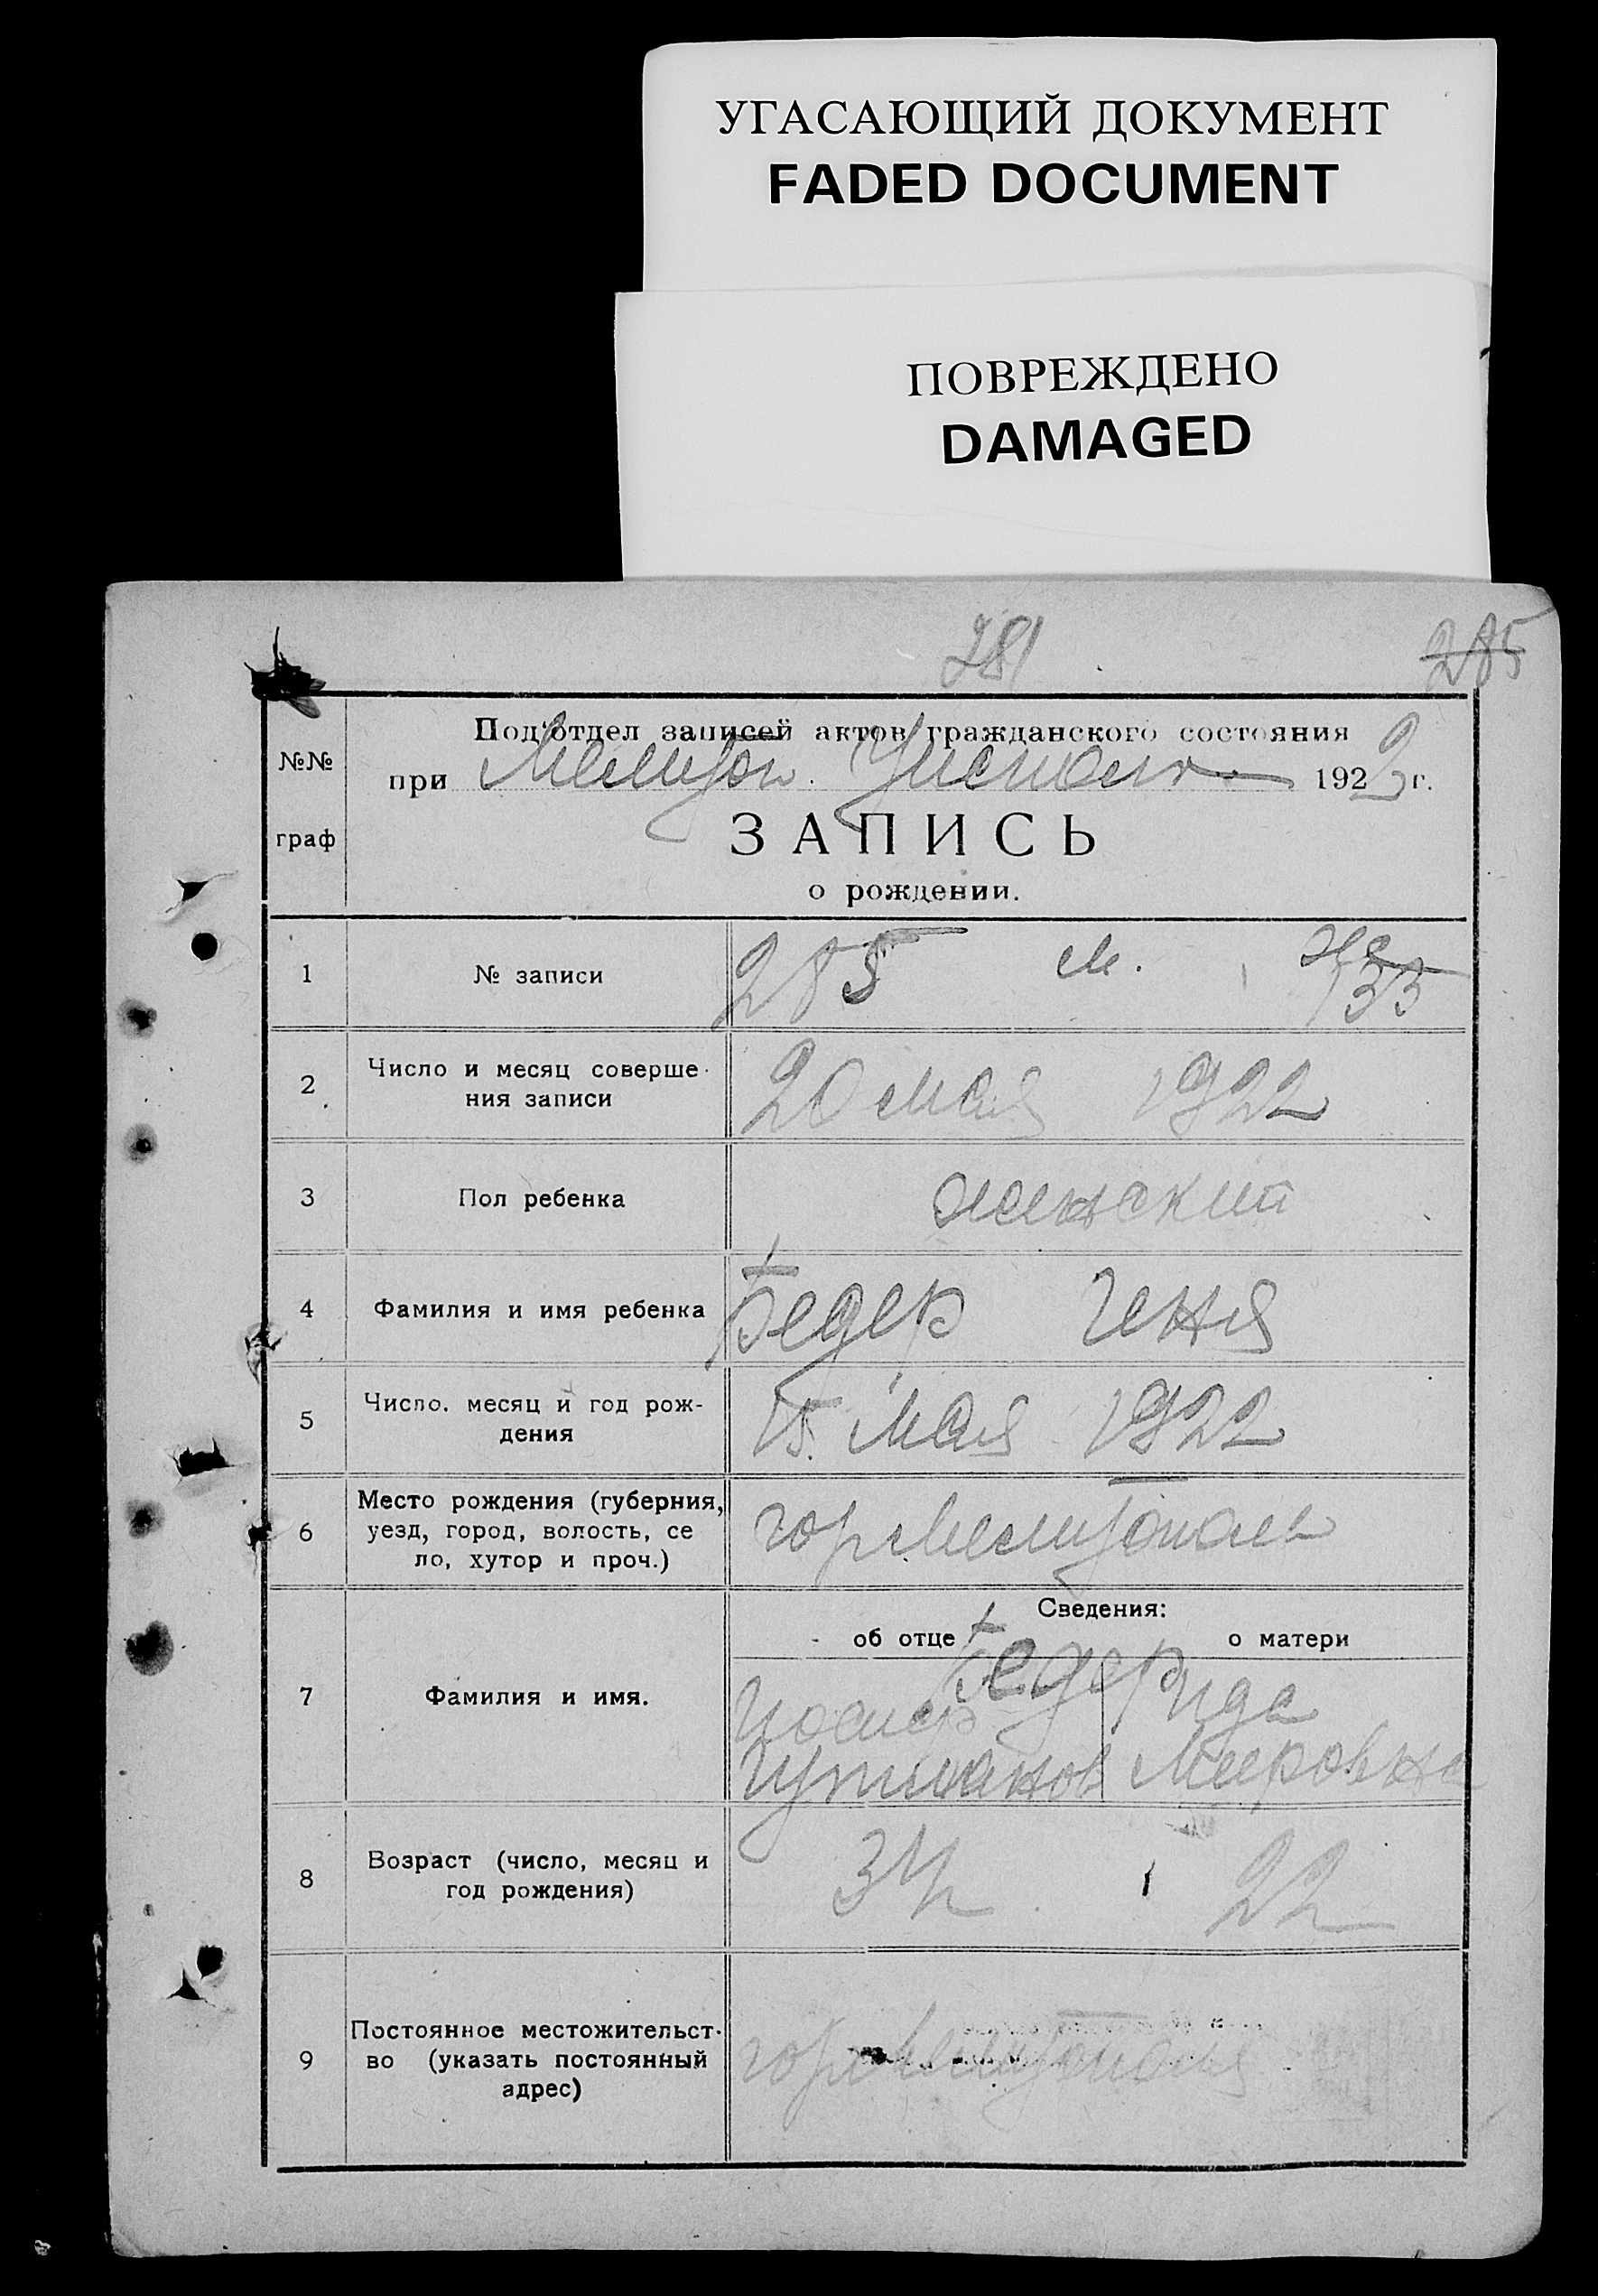 УГАСАЮЩИЙ ДОКУМЕНТ
FADED DOCUMENT
ПОВРЕЖДЕНО
DAMAGED
281
285
№№ граф
Под'отдел записей актов гражданского состояния
при Мелитоп. 1922 г.
ЗАПИСЬ
о рождении.
1 № записи 285 м. же 133
2 Число и месяц соверше-
ния записи 20 мая 1922
3 Пол ребенка женский
4 Фамилия и имя ребенка Бедер Геня
5 Число, месяц и год рож-
дения 15. мая 1922
6 Место рождения (губерния,
уезд, город, волость, се
ло, хутор и проч.) гор Мелитополь
Сведения:
об отце о матери
7 Фамилия и имя. Бедер
Иосиф Ида
Мееровна
8 Возраст (число, месяц и
год рождения) 34 22
9 Постоянное местожительст-
во (указать постоянный
адрес) гор Мелитополь